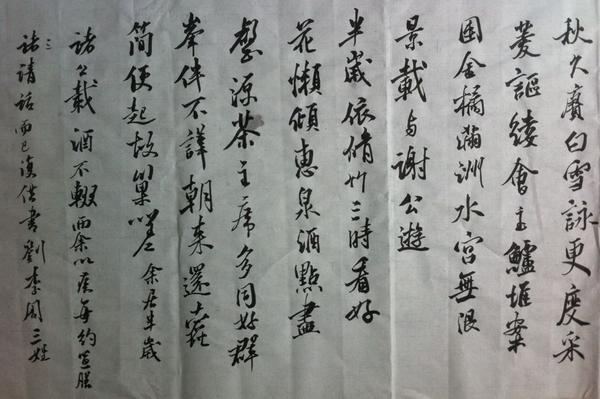 秋久賡白雪詠更度采
菱謳縷會玉鱸堆案
團金橘滿洲水宮無限
景載与謝公遊
半歲依脩竹三時看好
花懶傾惠泉酒點盡
壑源茶主席多同好群
峯伴不譁朝來還蠹
簡便起故巢嗟 余居半歲
諸公載酒不輟而余以疾每約置膳
請話而已復借書劉李周三姓